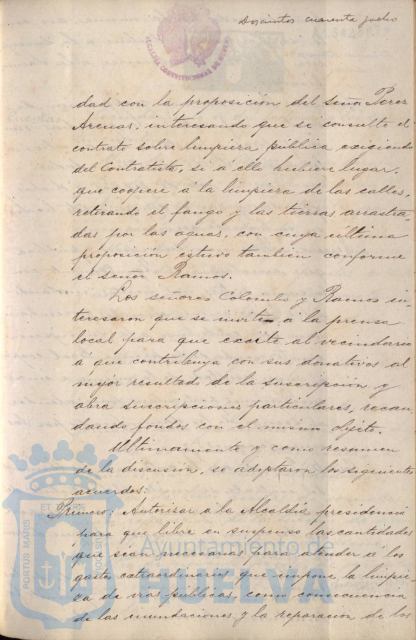 Doscientos cuarenta y ocho
ALCALDIA CONSTITUCIONAL DE HUELVA
dad con la proposición del señor Perez
Arenas, interesando que se consulte el
contrato sobre limpieza pública exigiendo
del Contratista, si á ello hubiere lugar,
que coopere á la limpieza de las calles,
retirando el fango y las tierras arrastra-
das por las aguas, con cuya última
proposición estuvo tambien conforme
el señor Ramos.
Los señores Colombo y Ramos in-
teresaron que se invite á la prensa
local para que excite al vecindario
á que contribuya con sus donativos al
mejor resultado de la suscripción y
abra suscripciones particulares, recau-
dando fondos con el mismo objeto.
Ultimamente y como resumen
de la discusión, se adoptaron los siguientes
acuerdos:
Primero: Autorizar a la Alcaldía presidencia
para que libre en suspenso las cantidades
que sean necesarias para atender á los
gastos extraordinarios que impone la limpie-
za de vias públicas, como consecuencia
de las inundaciones y la reparación de los
PORTUS MARIS ET
Ayuntamiento de
HUELVA